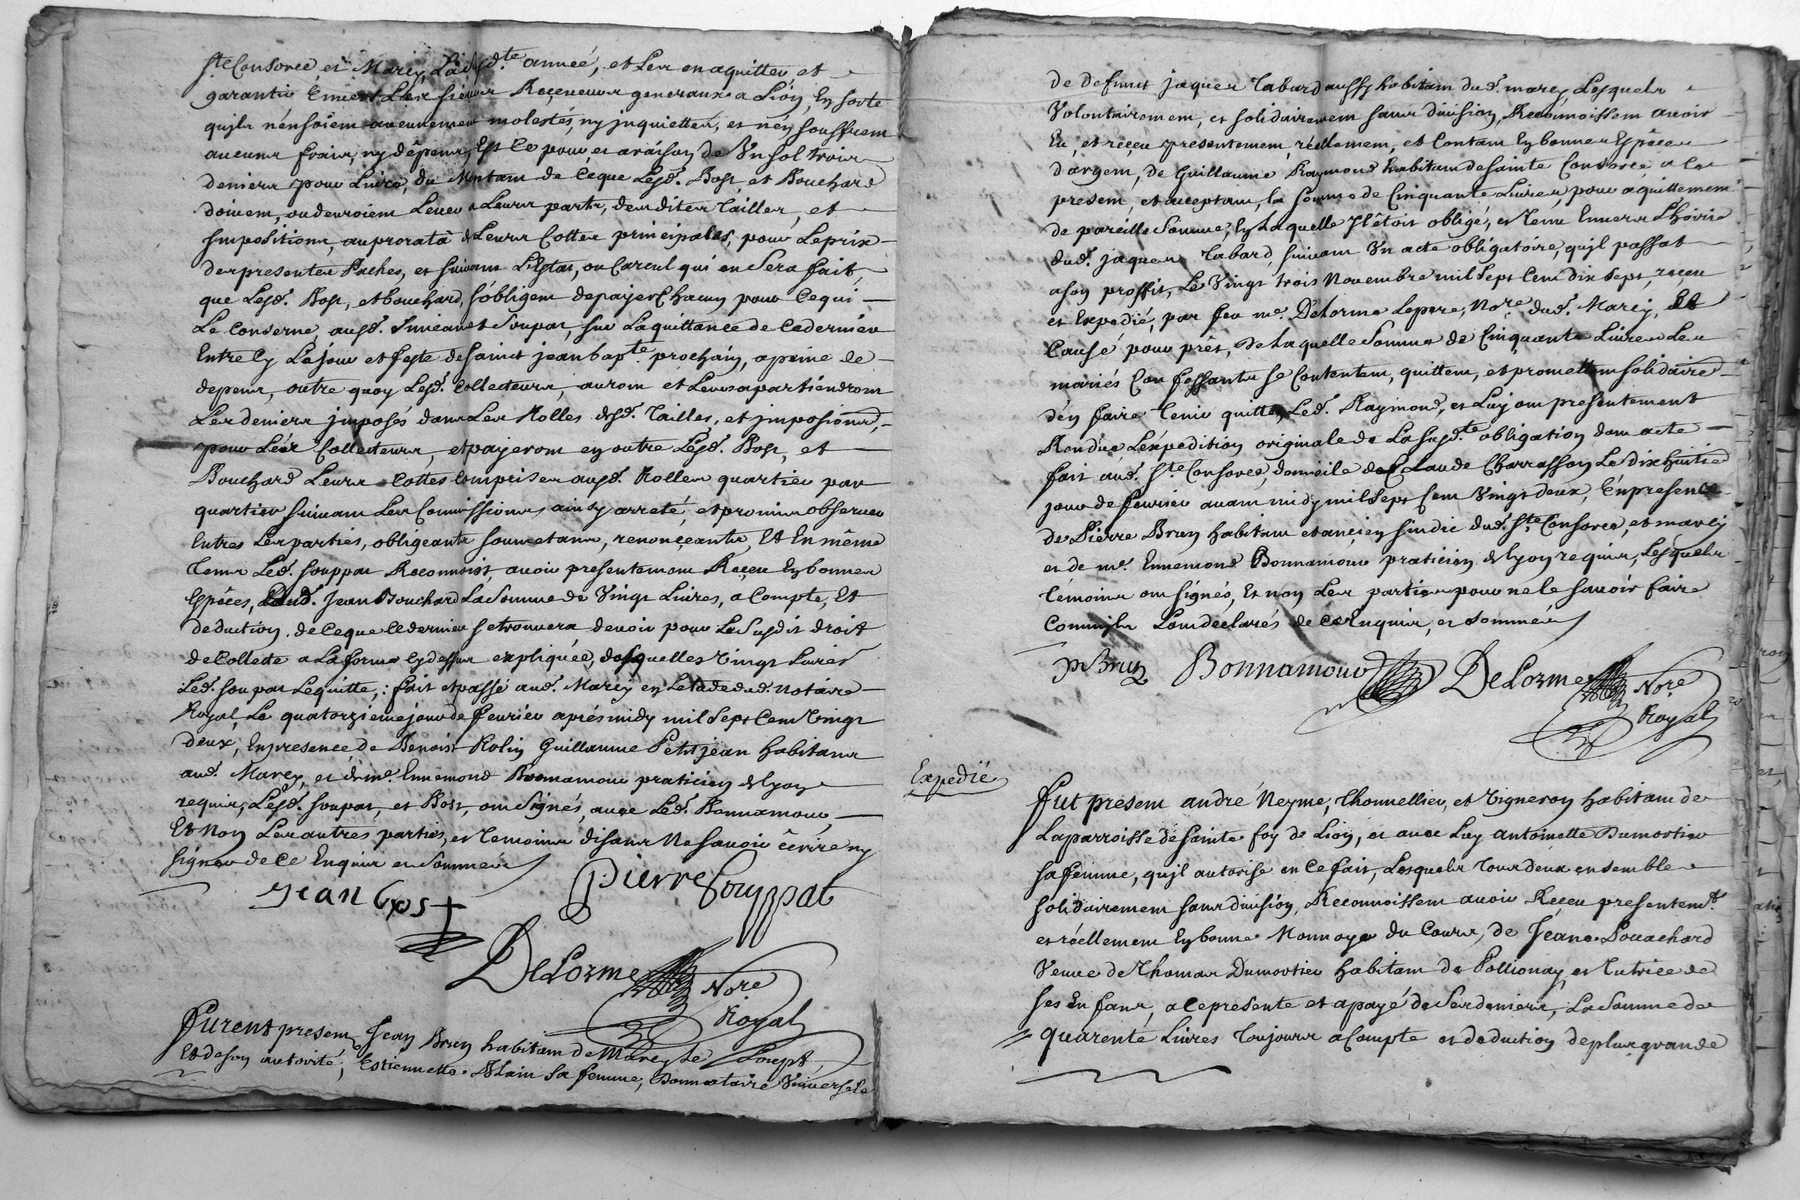 Ste Consorce, et Marcy, Ladte année, et Les en aquitter, et
garantir Envers Les sieurs Receveurs generaux a Lion, En sorte
quils n'ensoient aucunement molestés, ny inquiettes, et n'en souffrent
aucuns frais, ny dépens, Et Ce pour, et araison de Un sol trois
deniers pour Livre, du Montant de Ceque Lesd. Bost, et Bouchard
doivent, ou devroient Lever a Leurs parts, desdites Tailles, et
Impositions, au prorata de Leurs Cottes principales, pour Le prix
des presentes Paches, et suivant L'Estat, ou Carcul qui en Sera fait,
que Lesd. Bost, et bouchard, s'obligent de payer Chacun pour Cequi
Le Conserne, ausd. Simean et Soupat, sur La quittance de Cedernier
Entre Cy Le jour et feste de Saint jean bapte prochain, a peine de
depens, outre quoy Lesd. Collecteurs, auront et Leurs apartiendront
Les deniers imposés dans Les Rolles desd. Tailles, et impositions,
pour Les Collecteurs, et payeront en outre Lesd. Bost, et
Bouchard Leurs Cottes Comprises ausd. Rolles quartier par
quartier suivant Les Commissions ainsy arreté, et promis observer
Entres Les parties, obligeants soumetants, renonçeants, Et En même
Tems Led. Soupat Reconnoist, avoir presentement Reçeu En bonnes
Espèces, dud. Jean Bouchard La Somme de Vingt Livres, a Compte, Et
deduction, de Ceque Cedernier se trouvera devoir pour Le Susdit droit
de Collecte a La forme Cydessus expliquée, desquelles Vingt Livres
Led. Soupat Le quitte,: fait et passé aud. Marcy en Letude dud. Notaire
Royal, Le quatorzieme jour de fevrier aprés midy mil Sept Cent Vingt
deux, En presence de Benoist Rolin Guillaume Petitjean habitans
aud. Marcy, et de me. Ennemond Bonnamour praticien de Lyon
requis, Lesd. Soupat, et Bost, ont Signés, avec Led. Bonnamour,
Et Non Les autres parties, et Temoins disants Ne savoir écrire ny
signer de Ce Enquis et Sommés
Jean bost Pierre Souppat
DeLorme Nore
Royal
Furent present Jean Brun habitant de Marcy Le Loupt,
Et de son autorité, Estiennette Blain sa femme, Donnataire Universele
de defunt jaques Tabard aussy habitant dud. marcy, Lesquels
Volontairement, et solidairement sans division, Reconnoissent avoir
Eu, et reçeu presentement, réellement, et Contant En bonnes Espèces
d'argent, de Guillaume Raymond habitant de sainte Consorce, a Ce
present, et acceptant, la Somme de Cinquante Livres, pour aquittement
de pareille Somme, En Laquelle Il êtoit obligé, et Tenu Envers L'hoirie
dud. jaques Tabard, suivant Un acte obligatoire, qu'il passat
a son proffit, Le Vingt trois Novembre mil Sept Cent dix Sept, reçeu
et Expedié, par feu me. DeLorme Le pere, Nore dud. Marcy, Et
Causé pour prêt, de Laquelle Somme de Cinquante Livres Les
mariés Confessants se Contentent, quittent, et promettent solidaire
d'en faire Tenir quitte, Led. Raymond, et Luy ont presentement
Rendüe L'expedition originale de La susdte obligation dont acte
fait aud. Ste Consorce, domicile de Claude Charrasson Le dixhuitie
jour de fevrier avant midy mil Sept Cent Vingt deux, En presence
de Pierre Brun habitant et ancien sindic dud. Ste Consorce, et marcy
et de me. Ennemond Bonnamour praticien de Lyon requis, Lesquels
Témoins ont signés, Et non Les parties pour ne le savoir faire
Comm'ils L'ont declarés de Ce Enquis, et sommés
P Brun Bonnamour DeLorme Nore
Royal
Expedié
Fut present andré Neyme, Thonnellier, et Vigneron habitant de
La parroisse de Sainte foy de Lion, et avec Luy antoinette Dumortier
sa femme, qu'il autorise en Ce fait, Lesquels Tous deux ensemble
solidairement sans division, Reconnoissent avoir Reçeu presentemt.
et réellement En bonne Monnoye du Cours, de Jeane Pouachard
Veuve de Thomas Dumortier habitant de Pollionay, et Tutrice de
ses Enfans, a Ce presente et a payé de Ses deniers, La Somme de
quarente Livres Toujours a Compte et deduction de plus grande